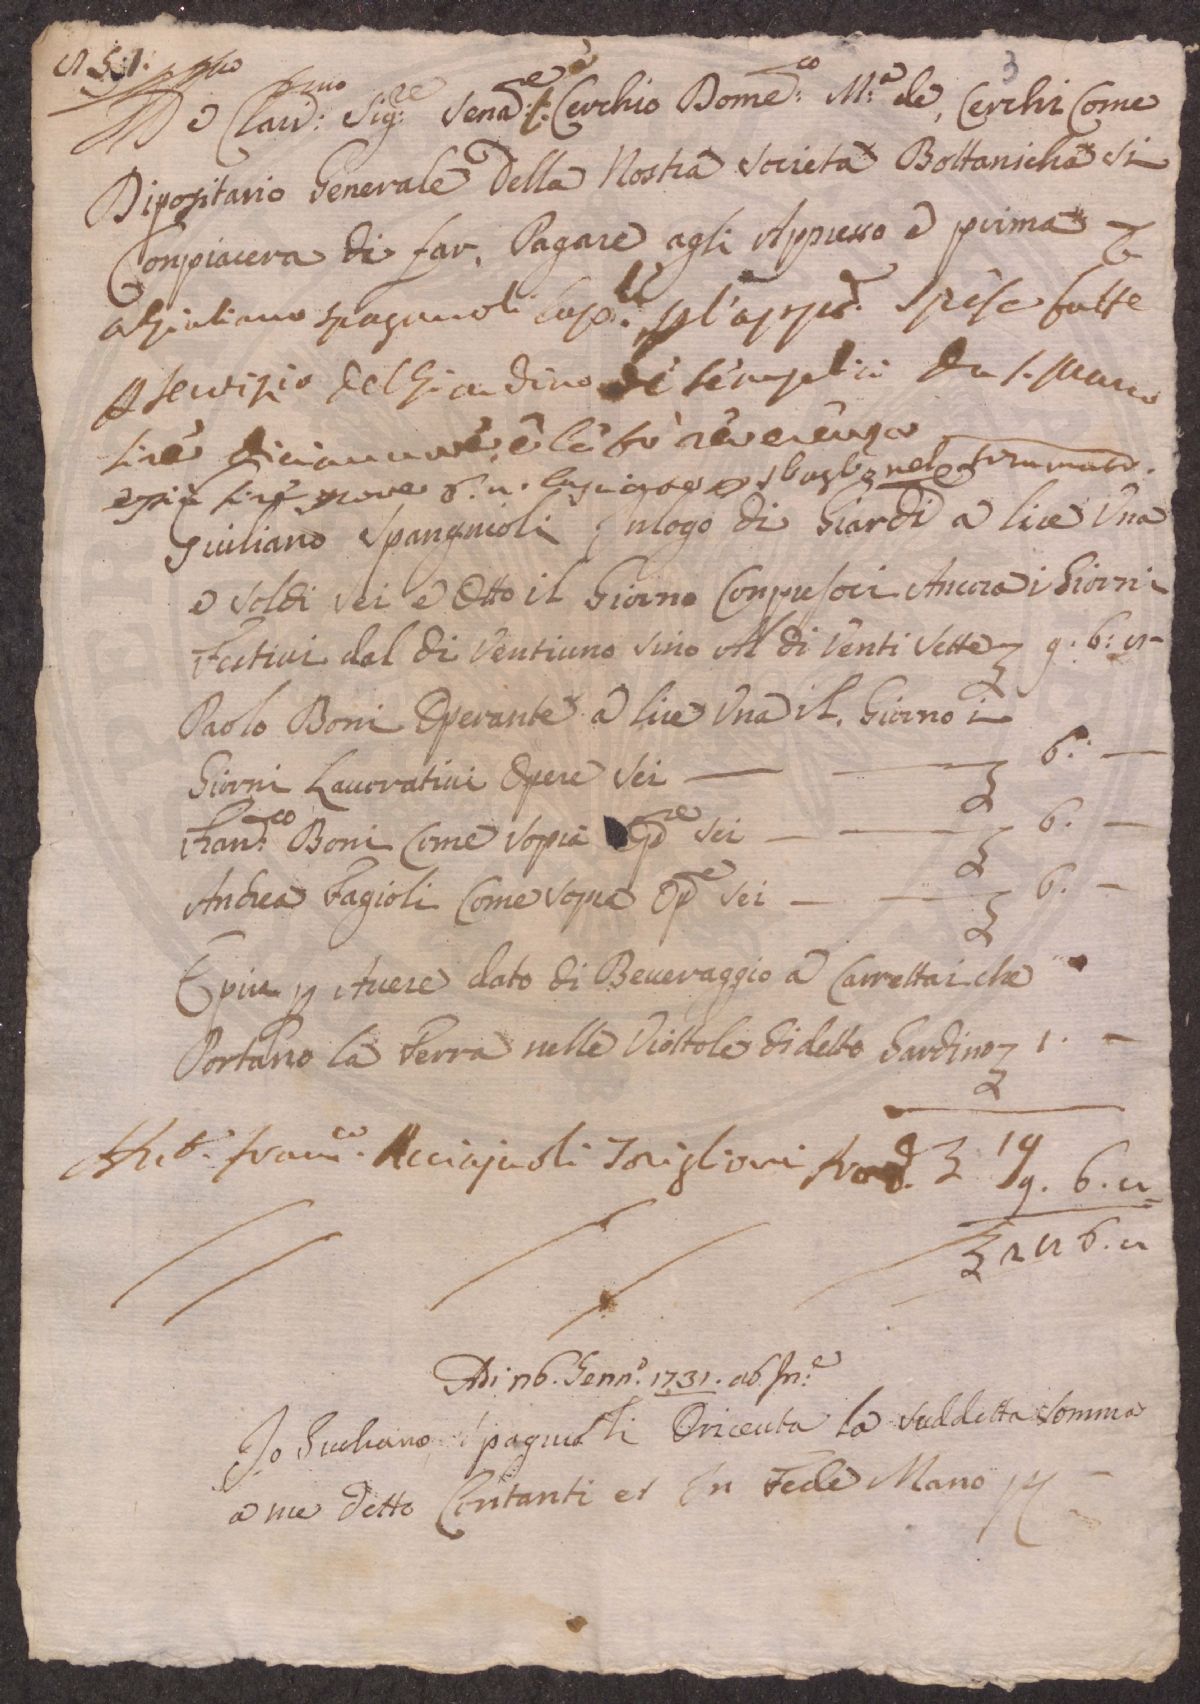 3
e Clar.mo Sig.re Senat.e Cerchio Dome.co M.a de, Cerchi Come
Dipositario Generale Della Nostra Società Bottanicha Si
Conpiacera di far, Pagare agli Appresso e prima
a Giuliano Spagnuoli Spese fatte
servizio del Giardino de semplici da S. Marco
lire diciannove, e le fo reverenza
e più lire nove 6. n.
Giuliano Spangnioli In logo di Giardi a lire Una
e soldi sei e Otto il Giorno Conpresoci Ancora i Giorni
Festivi dal di Ventiuno sino Al di Venti Sette 9. 6: 8
Paolo Boni Operante a lire Una il Giorno i
Giorni Lavorativi Opere Sei — 6. —
Fran.co Boni Come sopra Op.re sei — 6. —
Andrea Fagioli Come sopra Op.e sei — 6. —
E piu p Avere dato di Beveraggio a Carrettai che
Portano la Terra nelle Viottole di detto Gardino 1. —
Franc.o Acciajuoli 19
9. 6. 8
28 6. 8
Adi 26. Genn.o 1731. ab In.e
Io Giuliano Spagnuoli O ricevuta la suddetta somma
a me detto Contanti et In Fede Mano pp